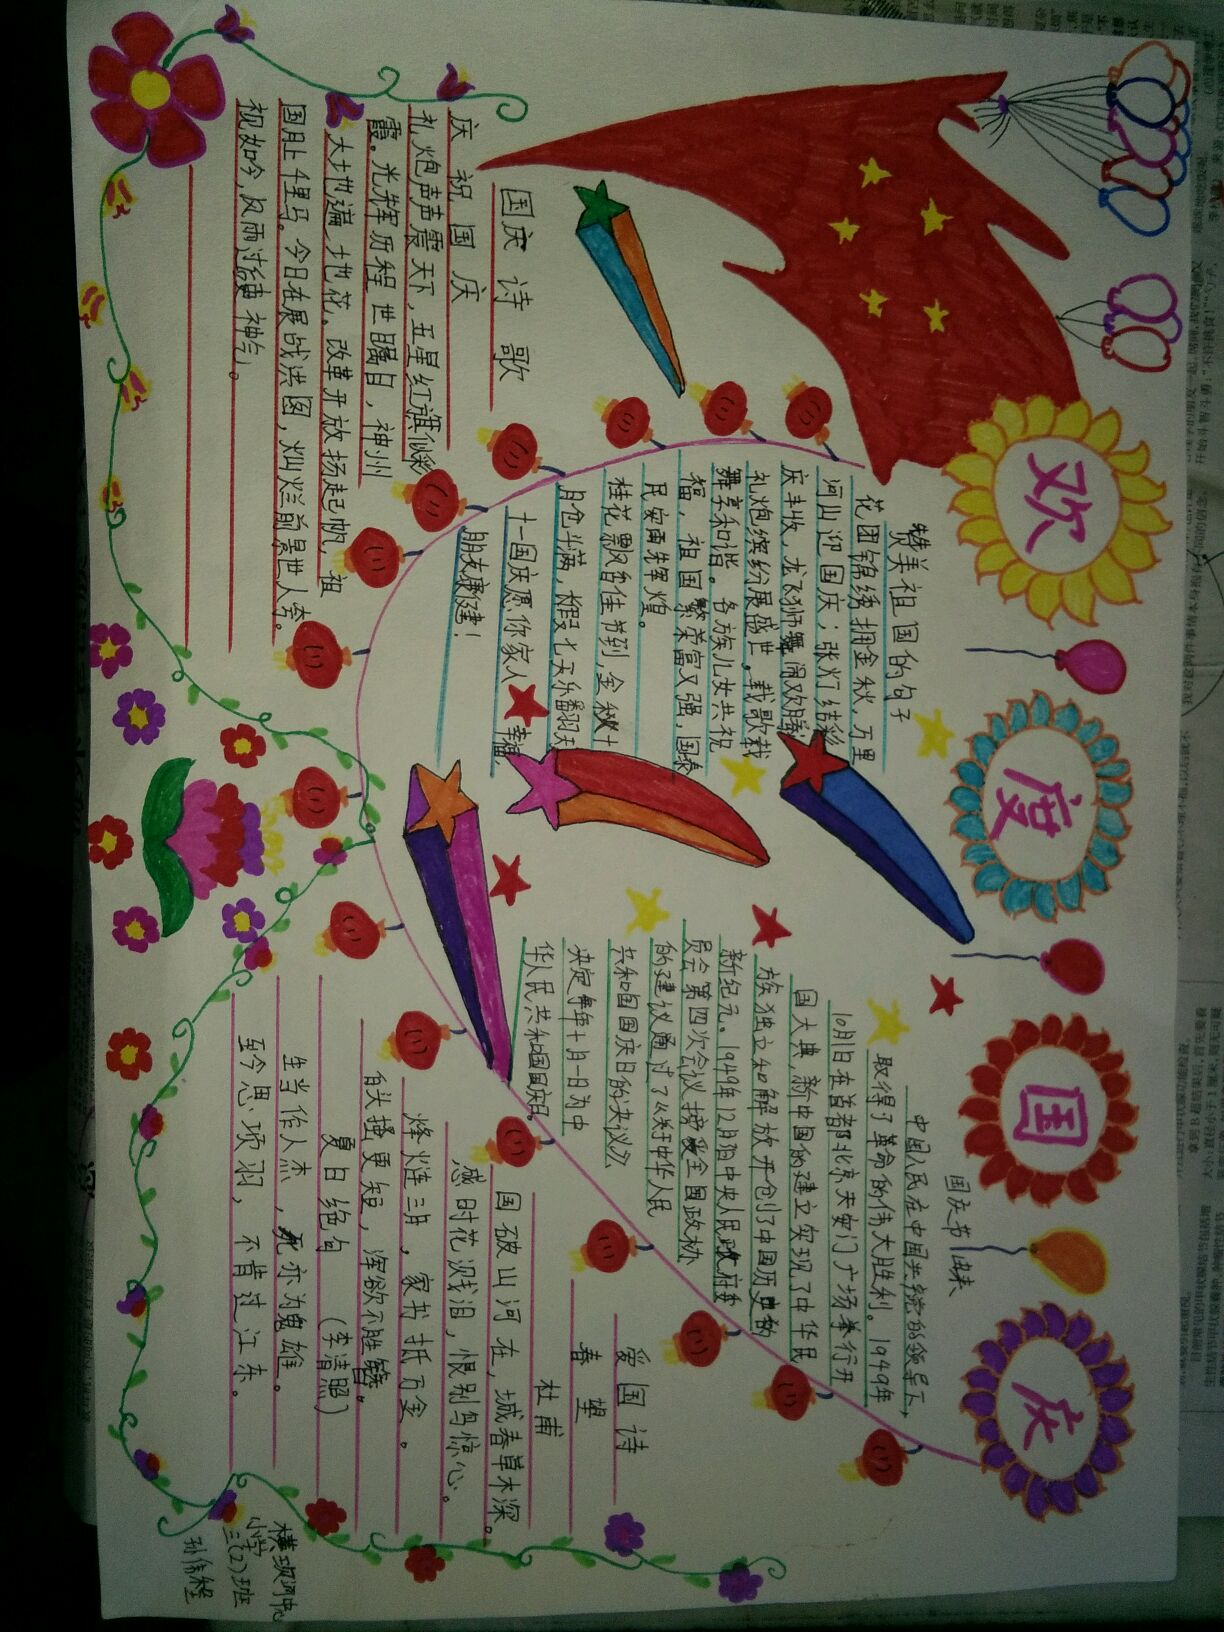 欢度国庆
国庆诗歌
庆祝国庆
礼炮声声震天下，五星红旗似彩
霞。光辉历程世瞩目，神州
大地遍地花。改革开放扬起帆，祖
国月上千里马。今日在展战洪图，灿烂前景世人夸。
视如今，风雨过後神气。
赞美祖国的句子
花团锦绣拥金秋，万里
河山迎国庆；张灯结彩
庆丰收，龙飞狮舞闹欢腾
礼炮缤纷展盛世。载歌载
舞享和谐。各方族儿女共祝
福，祖国繁荣富又强，国泰
民安面辉煌。
桂花飘香佳节到，金秋十
月仓斗满，长假七天乐翻天
十一国庆愿你家人幸福，
朋友康健！
国庆节由来
中国人民在中国共产党的领导下，
取得了革命的伟大胜利。1949年
10月1日在首都北京天安门广场举行开
国大典，新中国的建立实现了中华民
族独立和解放开创了中国历史的
新纪元。1949年12月3日中央人民政府委
员会第四次会议接受全国政协
的建议通过了《关于中华人民
共和国国庆日的决议》
决定每年十月一日为中
华人民共和国国庆日。
爱国诗
春望
杜甫
国破山河在，城春草木深。
感时花溅泪，恨别鸟惊心。
烽火连三月，家书抵万金。
白头搔更短，浑欲不胜簪。
夏日绝句 （李清照）
生当作人杰，死亦为鬼雄。
至今思项羽，不肯过江东。
小学
三（2）班